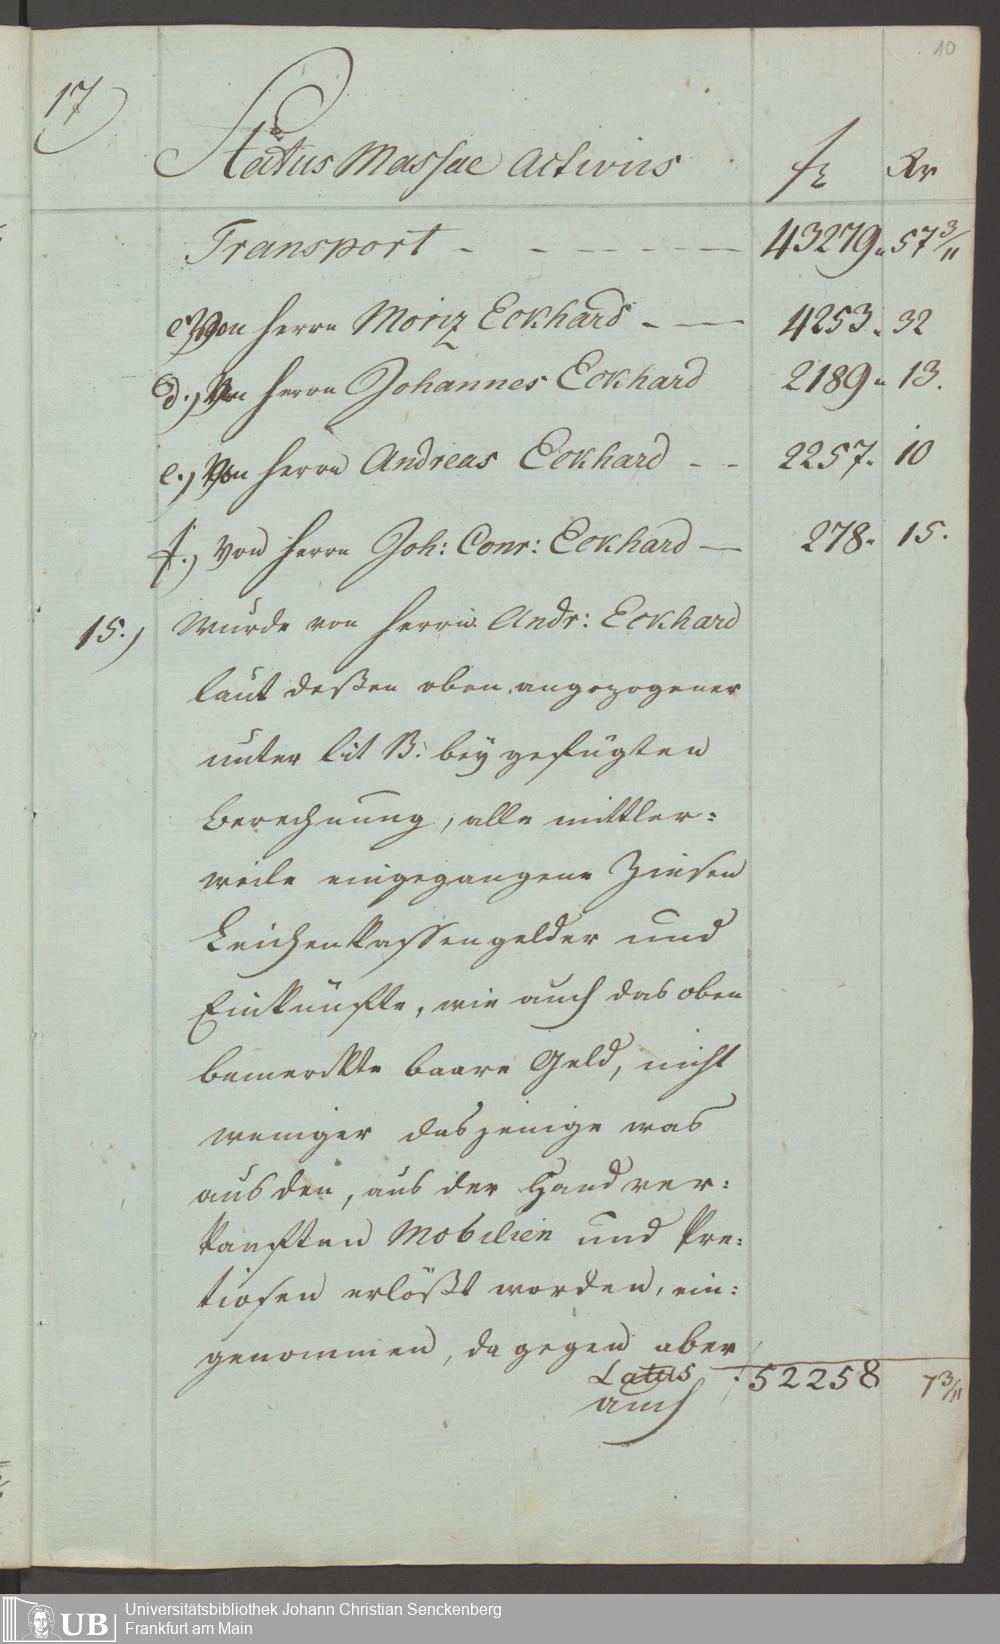 10
17
Status Massae Activus fl Kr
Transport - - - - - - 43279. 57 3/11
c.) Von Herrn Moriz Eckhard - — 4253. 32
d.) Von Herrn Johannes Eckhard 2189. 13.
e.) Von Herrn Andreas Eckhard - - 2257. 10
f.) Von Herrn Joh: Conr: Eckhard — 278. 15.
15.) Wurde von Herrn Andr: Eckhard
laut deßen oben angezogener
unter lit B: beygefügten
Berechnung, alle mittler:
weile eingegangene Zinsen
Leichenkassengelder und
Einkünfte, wie auch das oben
bemerckte baare Geld, nicht
weniger dasjenige was
aus den, aus der Hand ver:
kauften Mobilien und Pre:
tiosen erlößt worden, ein:
genommen, dagegen aber
Latus 52258 7 3/11
auch
UB Universitätsbibliothek Johann Christian Senckenberg
Frankfurt am Main